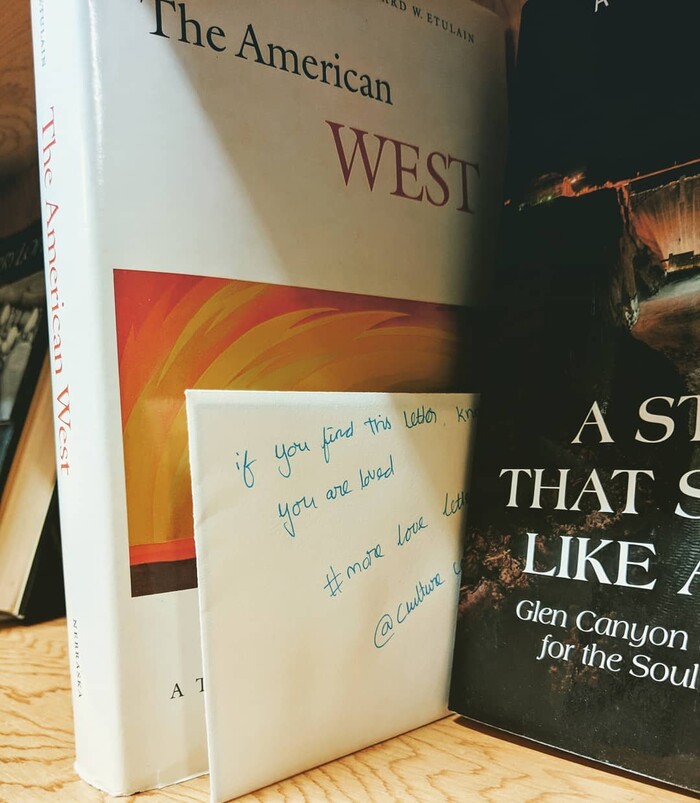 ARD W. ETULAIN
The American
WEST
The American West
NEBRASKA
A T
if you find this letter kn
you are loved
#more love lett
@culture
A
A ST
THAT S
LIKE A
Glen Canyon
for the Soul